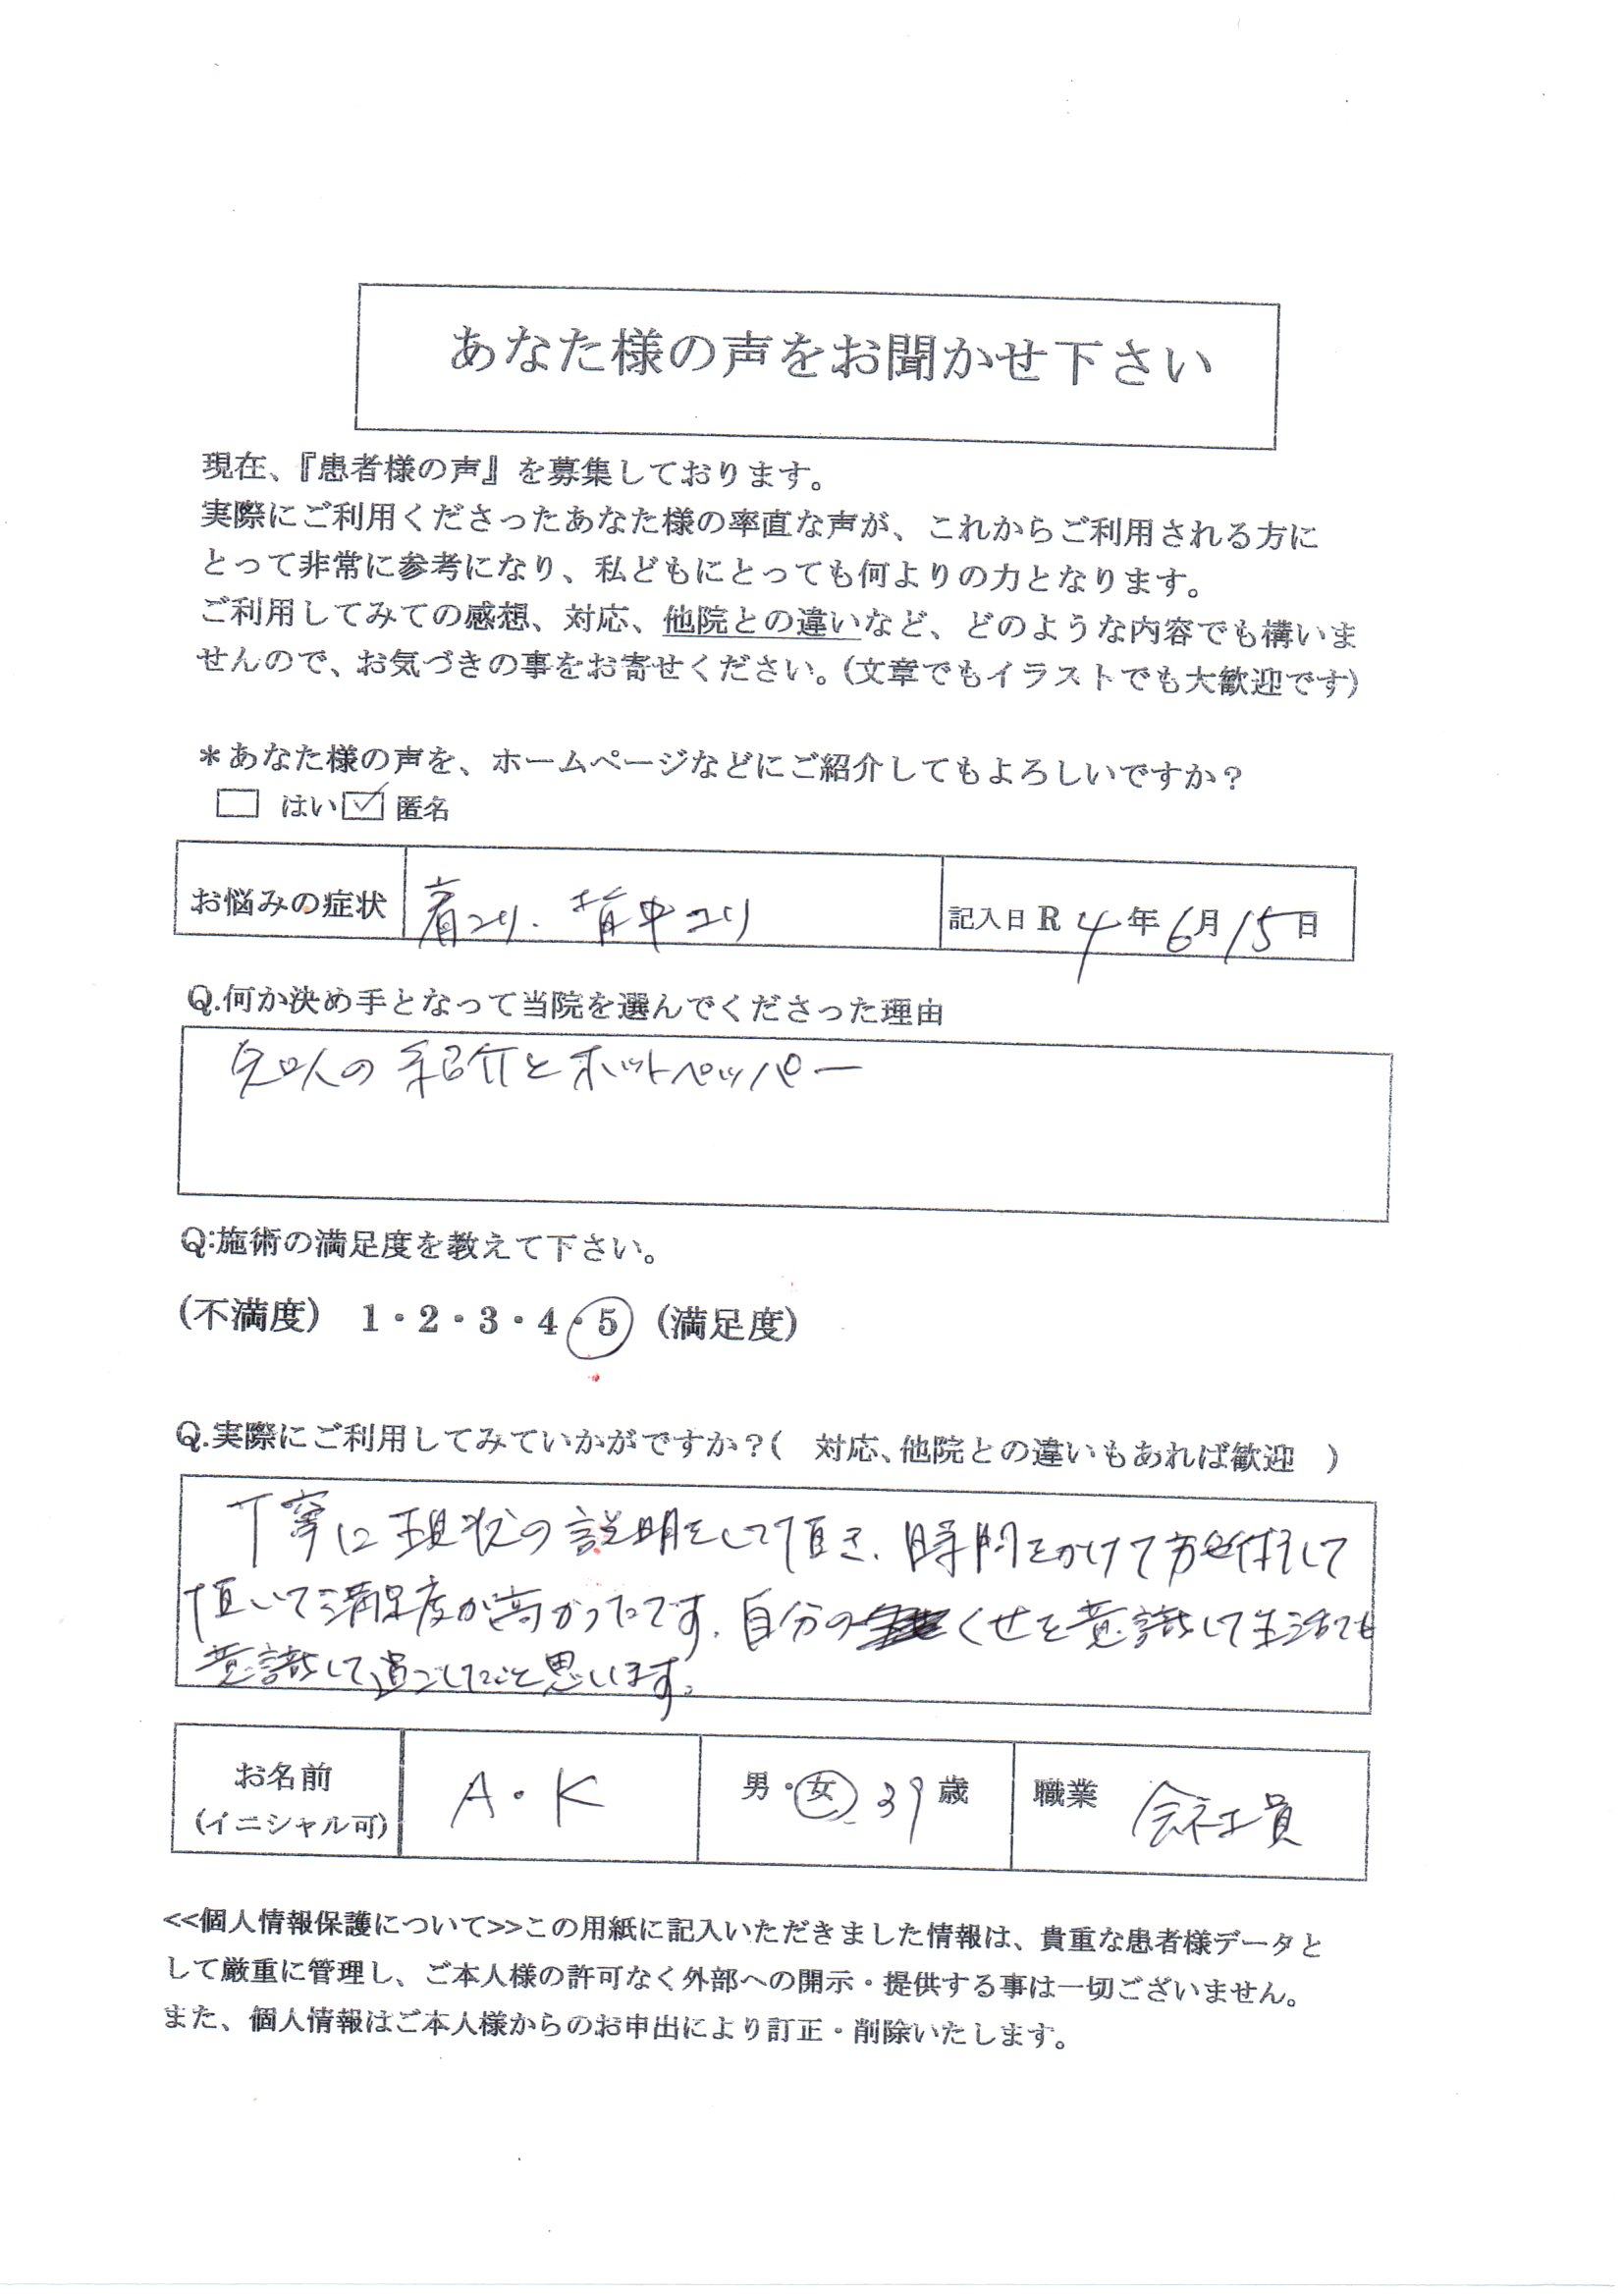 あなた様の声をお聞かせ下さい
現在、『患者様の声』を募集しております。
実際にご利用くださったあなた様の率直な声が、これからご利用される方に
とって非常に参考になり、私どもにとっても何よりの力となります。
ご利用してみての感想、対応、他院との違いなど、どのような内容でも構いま
せんので、お気づきの事をお寄せください。(文章でもイラストでも大歓迎です)
＊あなた様の声を、ホームページなどにご紹介してもよろしいですか？
はい 匿名
お悩みの症状 肩コリ、背中コリ 記入日 R 4 年 6 月 15 日
Q.何か決め手となって当院を選んでくださった理由
知人の紹介とホットペッパー
Q:施術の満足度を教えて下さい。
(不満度) 1・2・3・4・5 (満足度)
Q.実際にご利用してみていかがですか？( 対応、他院との違いもあれば歓迎 )
丁寧に現状の説明をして頂き、時間をかけて施術をして
頂いて満足度が高かったです。自分のくせを意識して生活でも
意識して過ごしたいと思います。
お名前 A・K 男・女 39 歳 職業 会社員
(イニシャル可)
<<個人情報保護について>>この用紙に記入いただきました情報は、貴重な患者様データと
して厳重に管理し、ご本人様の許可なく外部への開示・提供する事は一切ございません。
また、個人情報はご本人様からのお申出により訂正・削除いたします。